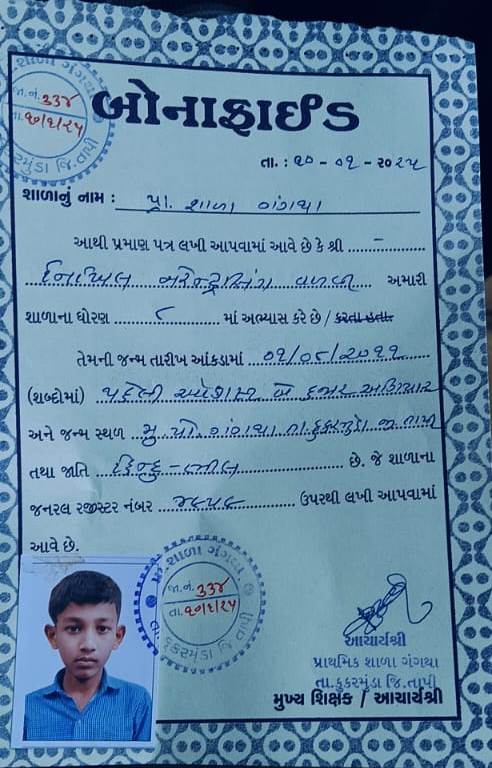 શાળા ગંગથા
જા.નં. 334
તા. ૧૦/૬/૨૫
કુકરમુંડા જિ.તાપી
બોનાફાઈડ
તા. : ૧૦ - ૦૬ - ૨૦૨૫
શાળાનું નામ : પ્રા. શાળા ગંગથા
આથી પ્રમાણ પત્ર લખી આપવામાં આવે છે કે શ્રી –
નરેન્દ્રસિંગ વળવી અમારી
શાળાના ધોરણ ૮ માં અભ્યાસ કરે છે / કરતા હતા.
તેમની જન્મ તારીખ આંકડામાં ૦૧/૦૮/૨૦૧૧
(શબ્દોમાં) પહેલી ઓગસ્ટ બે હજાર અગિયાર
અને જન્મ સ્થળ મુ.પો. ગંગથા તા.કુકરમુંડા જી.તાપી
તથા જાતિ હિન્દુ - ભીલ છે. જે શાળાના
જનરલ રજીસ્ટર નંબર ઉપરથી લખી આપવામાં
આવે છે.
પ્રા.શાળા ગંગથા
જા.નં. 334
તા. ૧૦/૬/૨૫
તા. કુકરમુંડા જિ.તાપી
આચાર્યશ્રી
પ્રાથમિક શાળા ગંગથા
તા.કુકરમુંડા જિ.તાપી
મુખ્ય શિક્ષક / આચાર્યશ્રી